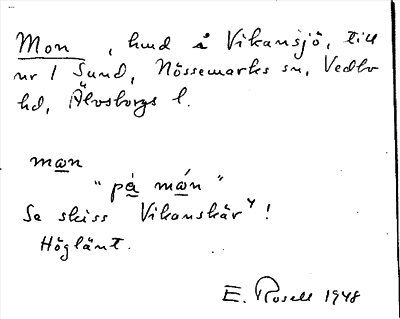 Mon, hmd i Vikansjö, till
nr 1 Sund, Nössemarks sn, Vedbo
hd, Älvsborgs l.
man
"på mǻn"
Se skiss "Vikanskär"!
Höglänt.
E. Rosell 1948